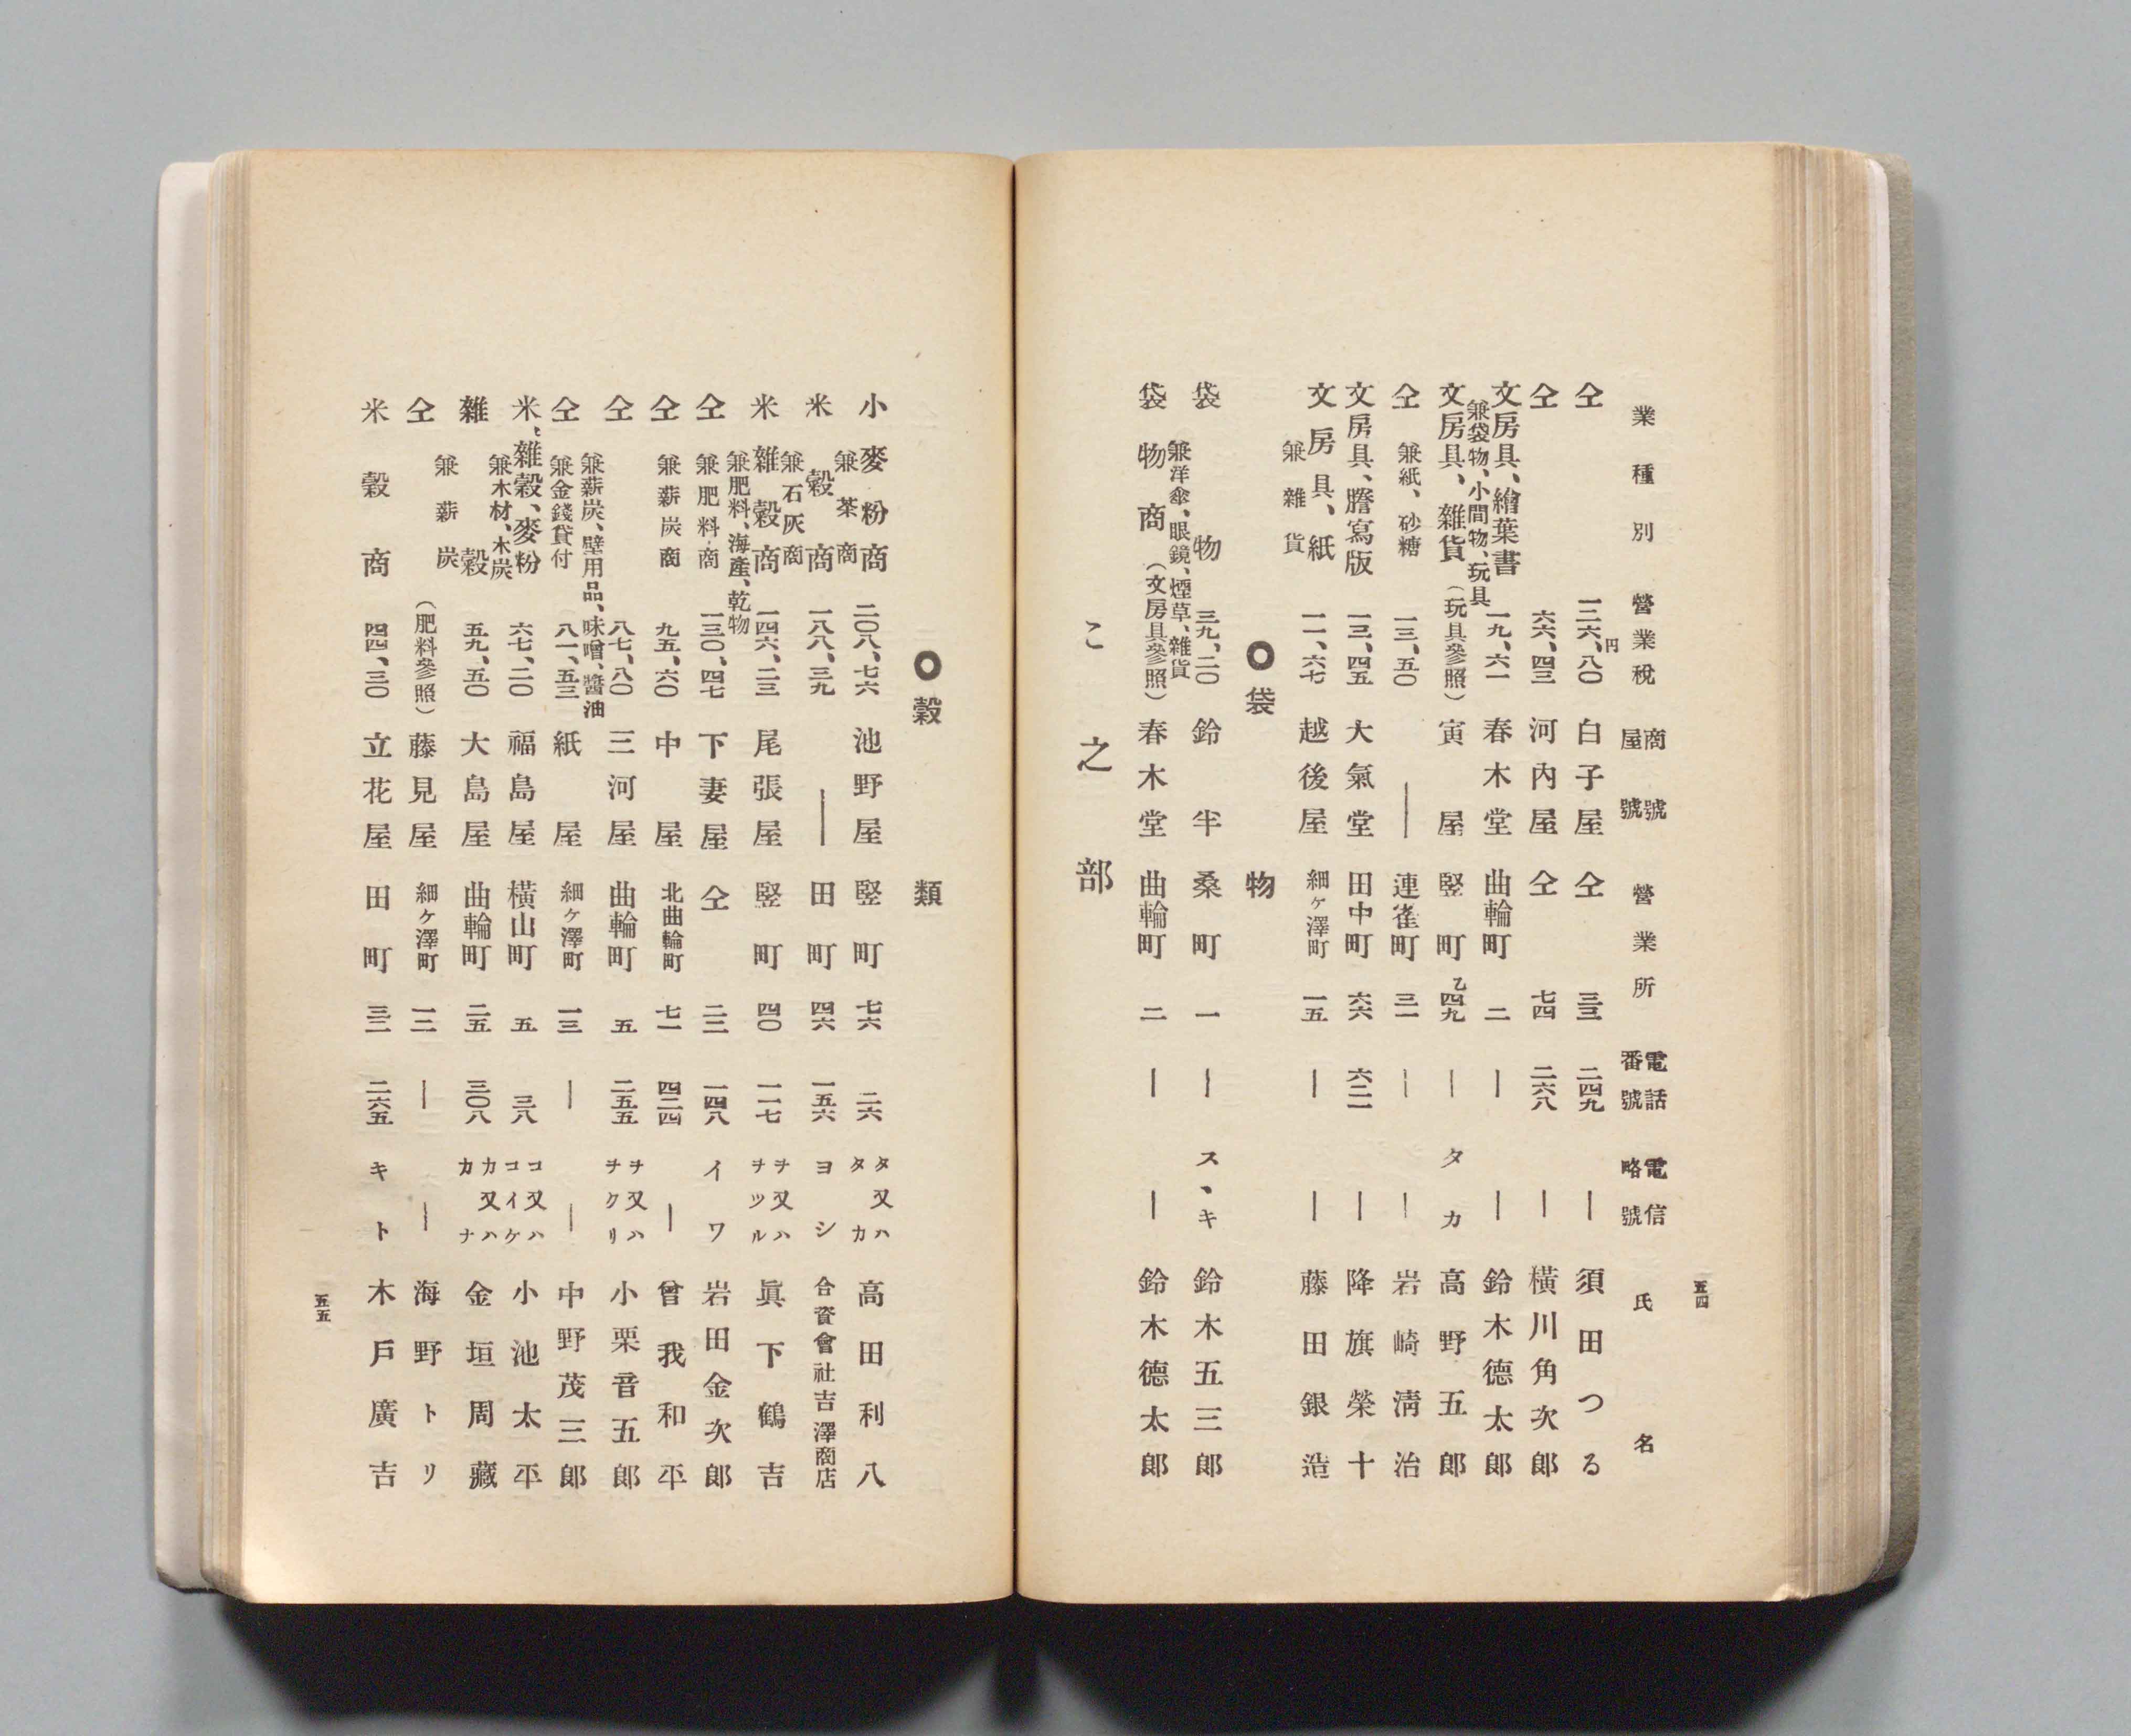 業種別 營業税 商號屋號 營業所 電話番號 電信略號 氏名
仝 一二六、八〇円 白子屋 仝 三三 二四九 ― 須田つる
仝 六六、四三 河内屋 仝 七四 二六八 ― 横川角次郎
文房具、繪葉書 一九、六一 春木堂 曲輪町 二 ― ― 鈴木德太郎
兼袋物、小間物、玩具
文房具、雜貨 (玩具參照) 寅屋 竪町 乙四九 ― タカ 高野五郎
仝 兼紙、砂糖 一三、五〇 ― 連雀町 三一 ― ― 岩崎淸治
文房具、謄寫版 一三、四五 大氣堂 田中町 六六 六二一 ― 降旗榮十
文房具、紙 一一、六七 越後屋 細ヶ澤町 一五 ― ― 藤田銀造
兼雜貨
○袋物
袋物 三九、二〇 鈴半 桑町 一 ― スヽキ 鈴木五三郎
兼洋傘、眼鏡、煙草、雜貨
袋物商 (文房具參照) 春木堂 曲輪町 二 ― ― 鈴木德太郎
こ之部
五四
○穀類
小麥粉商 二〇八、七六 池野屋 竪町 七六 二六 タ又ハタカ 高田利八
兼茶商
米穀商 一八八、三九 ― 田町 四六 一五六 ヨシ 合資會社吉澤商店
兼石灰商
米雜穀商 一四六、二三 尾張屋 竪町 四〇 一一七 ヲ又ハヲツル 眞下鶴吉
兼肥料、海產、乾物
仝 兼肥料商 一三〇、四七 下妻屋 仝 二三 一四八 イワ 岩田金次郎
仝 兼薪炭商 九五、六〇 中屋 北曲輪町 七一 四二四 ― 曾我和平
仝 八七、八〇 三河屋 曲輪町 五 二五五 ヲ又ハヲクリ 小栗音五郎
兼薪炭、壁用品、味噌、醬油
仝 兼金錢貸付 八一、五三 紙屋 細ヶ澤町 一三 ― ― 中野茂三郎
米、雜穀、麥粉 六七、二〇 福島屋 横山町 五 三八 コ又ハコイケ 小池太平
兼木材、木炭
雜穀 五九、五〇 大島屋 曲輪町 二五 三〇八 カ又ハカナ 金垣周藏
兼薪炭
仝 (肥料參照) 藤見屋 細ヶ澤町 一二 ― ― 海野トリ
米穀商 四四、三〇 立花屋 田町 三二 二六五 キト 木戸廣吉
五五